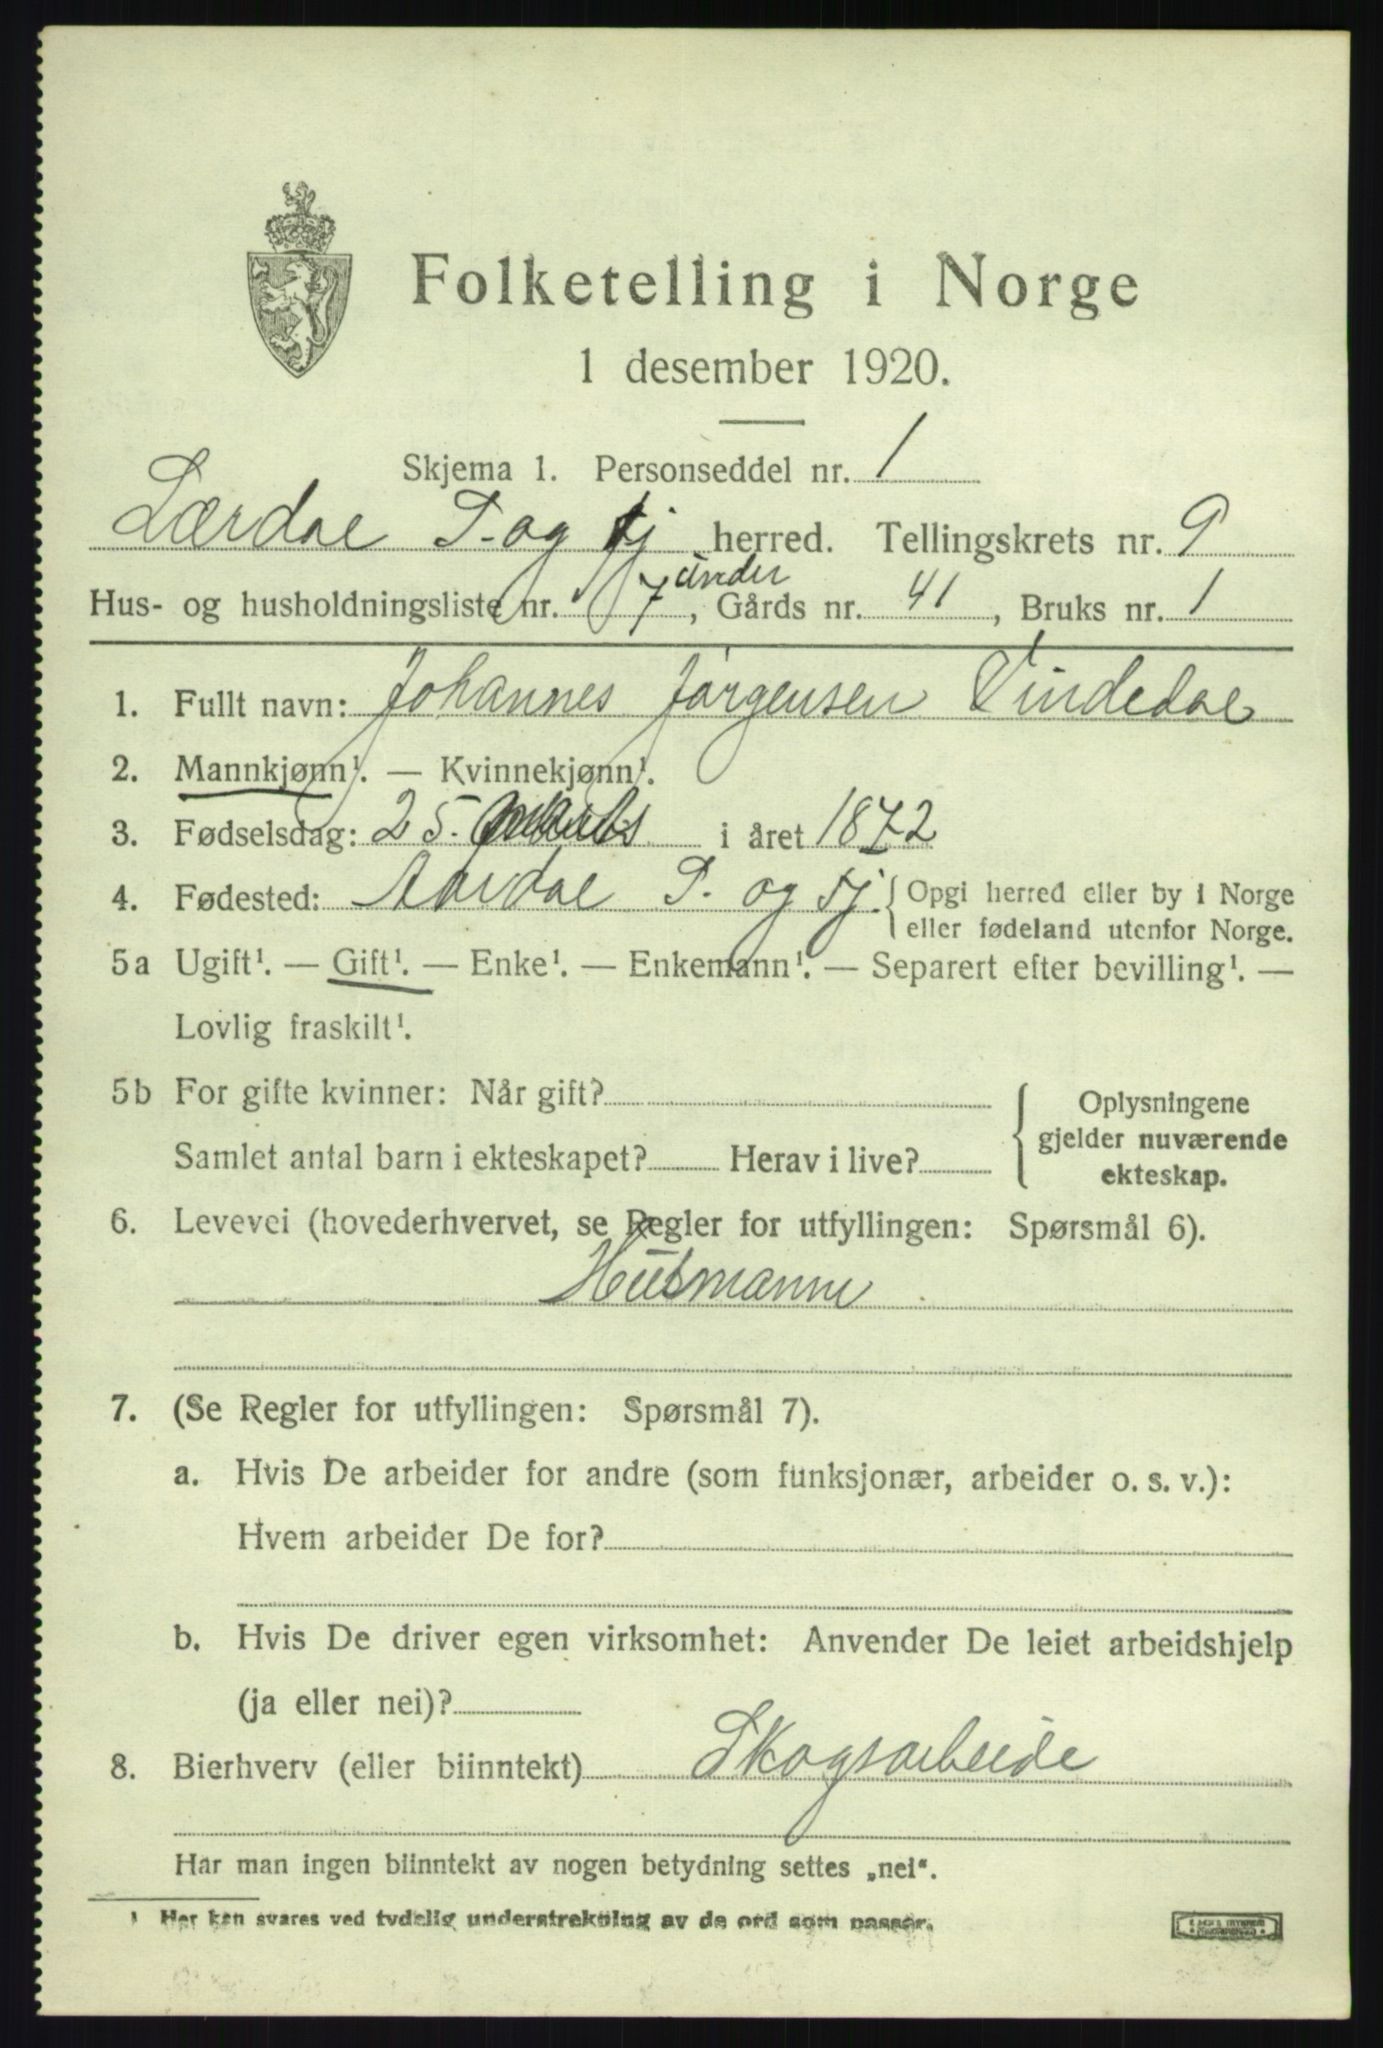 Folketelling i Norge
1 desember 1920.
Skjema 1. Personseddel nr. 1
Lærdal P. og fj herred. Tellingskrets nr. 9
Hus- og husholdningsliste nr. 7 under, Gårds nr. 41, Bruks nr. 1
1. Fullt navn: Johannes Jørgensen Vindedal
2. Mannkjønn¹. — Kvinnekjønn¹.
3. Fødselsdag: 25. i året 1872
4. Fødested: Aardal P. og fj. Opgi herred eller by i Norge
eller fødeland utenfor Norge.
5a Ugift¹. — Gift¹. — Enke¹. — Enkemann¹. — Separert efter bevilling¹. —
Lovlig fraskilt¹.
5b For gifte kvinner: Når gift? Oplysningene
gjelder nuværende
Samlet antal barn i ekteskapet? Herav i live? ekteskap.
6. Levevei (hovederhvervet, se Regler for utfyllingen: Spørsmål 6).
Husmann
7. (Se Regler for utfyllingen: Spørsmål 7).
a. Hvis De arbeider for andre (som funksjonær, arbeider o. s. v.):
Hvem arbeider De for?
b. Hvis De driver egen virksomhet: Anvender De leiet arbeidshjelp
(ja eller nei)?
8. Bierhverv (eller biinntekt) Skogsarbeide
Har man ingen biinntekt av nogen betydning settes „nei“.
¹ Her kan svares ved tydelig understrekning av de ord som passer.